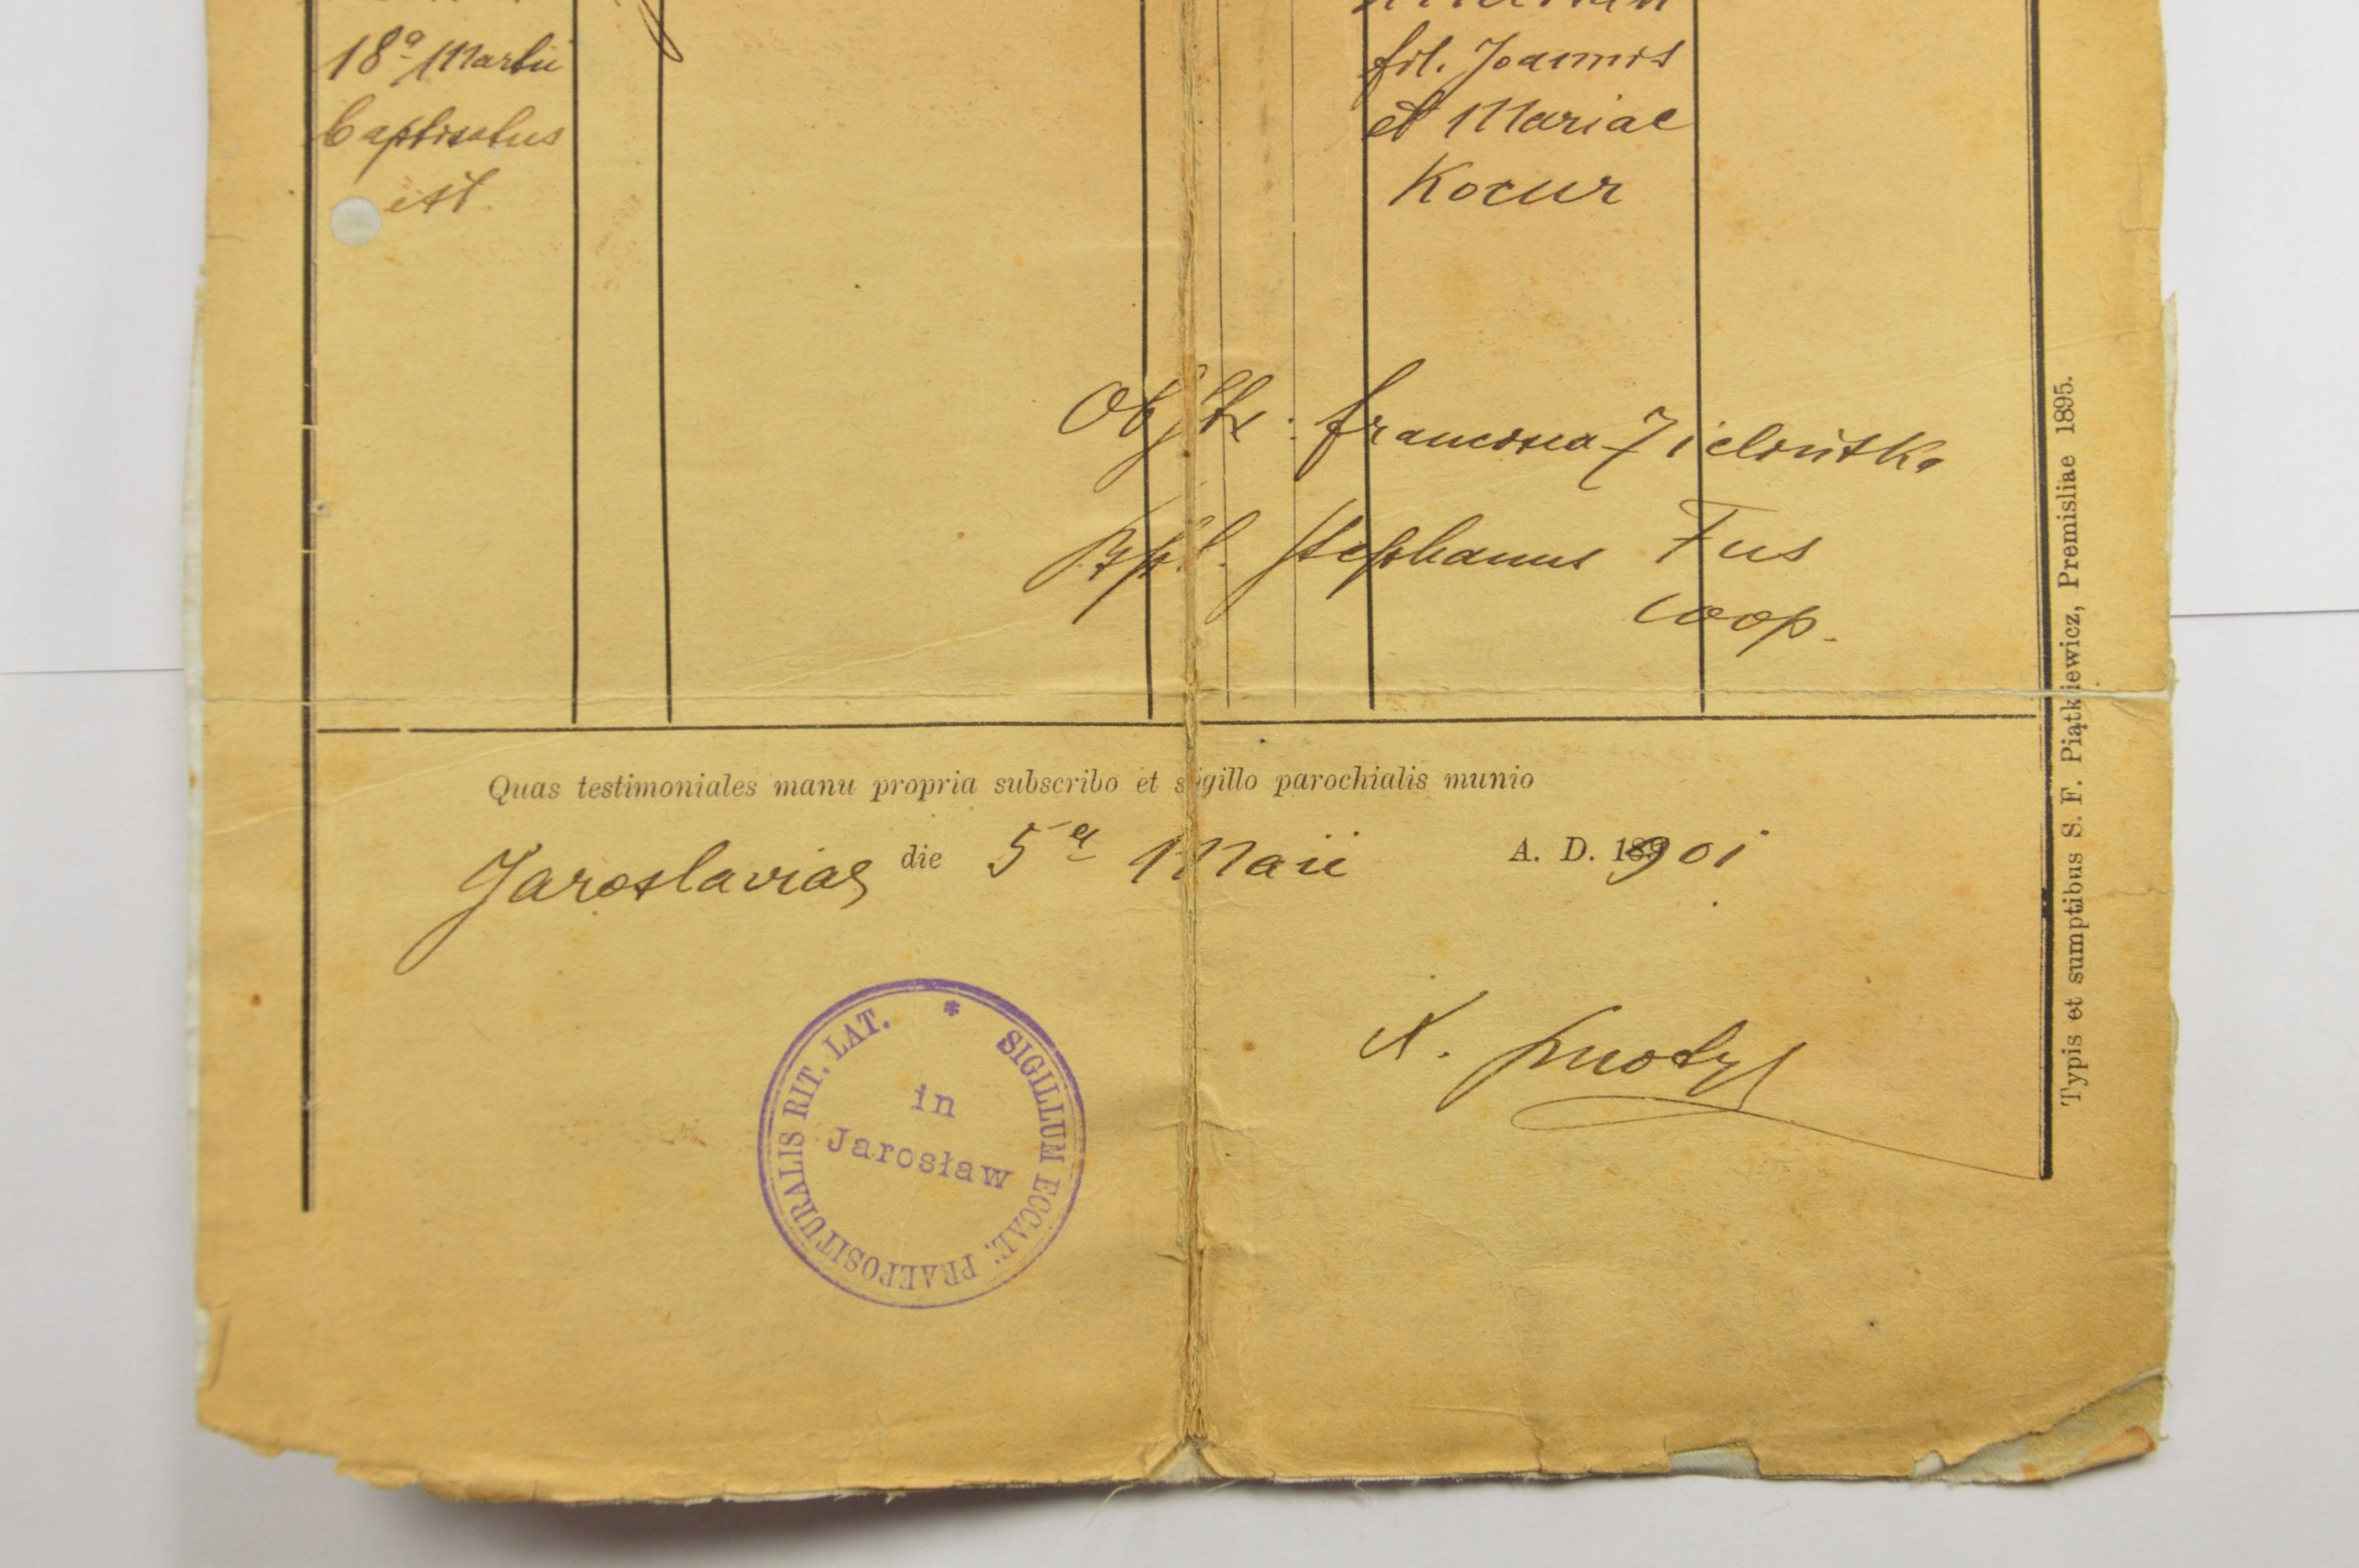 18ª Martii
baptisatus
est.
fil. Joannis
et Mariae
Kocur
Obstr. Francisca Zielińska
Bpt. Stephanus Fus
coop.
Quas testimoniales manu propria subscribo et sigillo parochialis munio
Jaroslaviae die 5ª Maii A. D. 1901
SIGILLUM ECCAE. PRAEPOSITURALIS RIT. LAT. *
in
Jarosław
Typis et sumptibus S. F. Piątkiewicz, Premisliae 1895.